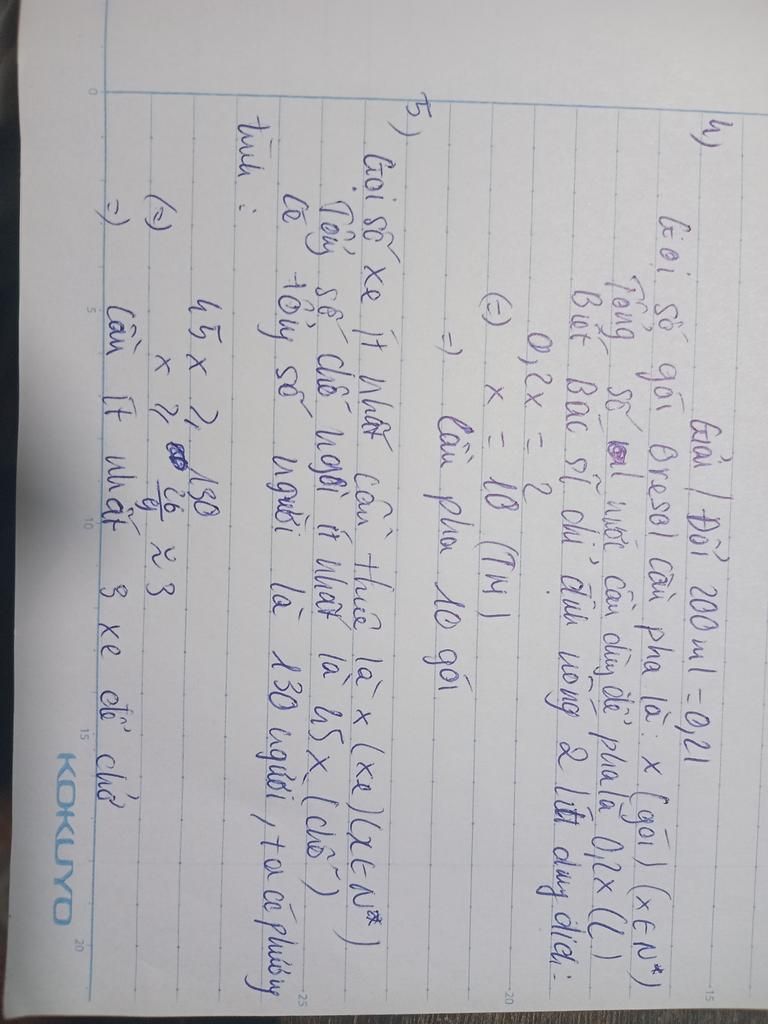 4)
Giải / Đổi 200ml = 0,2l
Gọi số gói Oresol cần pha là: x (gói) (x ∈ N*)
Tổng số nước cần dùng để pha là 0,2x (L)
Biết Bác sĩ chỉ định uống 2 lít dung dịch:
0,2x = 2
(=) x = 10 (TM)
=) Cần pha 10 gói
5)
Gọi số xe ít nhất cần thuê là x (xe) (x ∈ N*)
Tổng số chỗ ngồi ít nhất là 45x (chỗ)
Có tổng số người là 130 người, ta có phương
trình:
45x ≥ 130
(=) x ≥ 26/9 ≈ 3
=) Cần ít nhất 3 xe để chở
KOKUYO
0
5
10
15
20
15
20
25